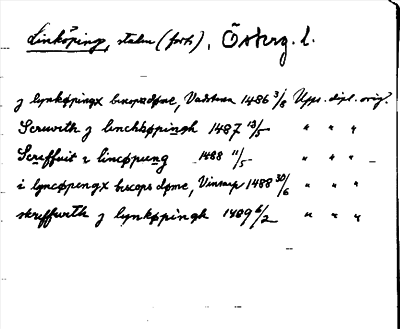 Linköping, staden (forts.), Österg. l.
y lynkøpingx biscopsdøme, Vadstena 1486 3/8 Upps. dipl. orig.
Scruvith y linchkøpingh 1487 13/5 " " "
Screffuit i lincøpung 1488 11/5 " " "
i lyncøpengx biscops døme, Vinstorp 1488 30/6 " " "
skriffwith y lynkøpingh 1489 6/2 " " "